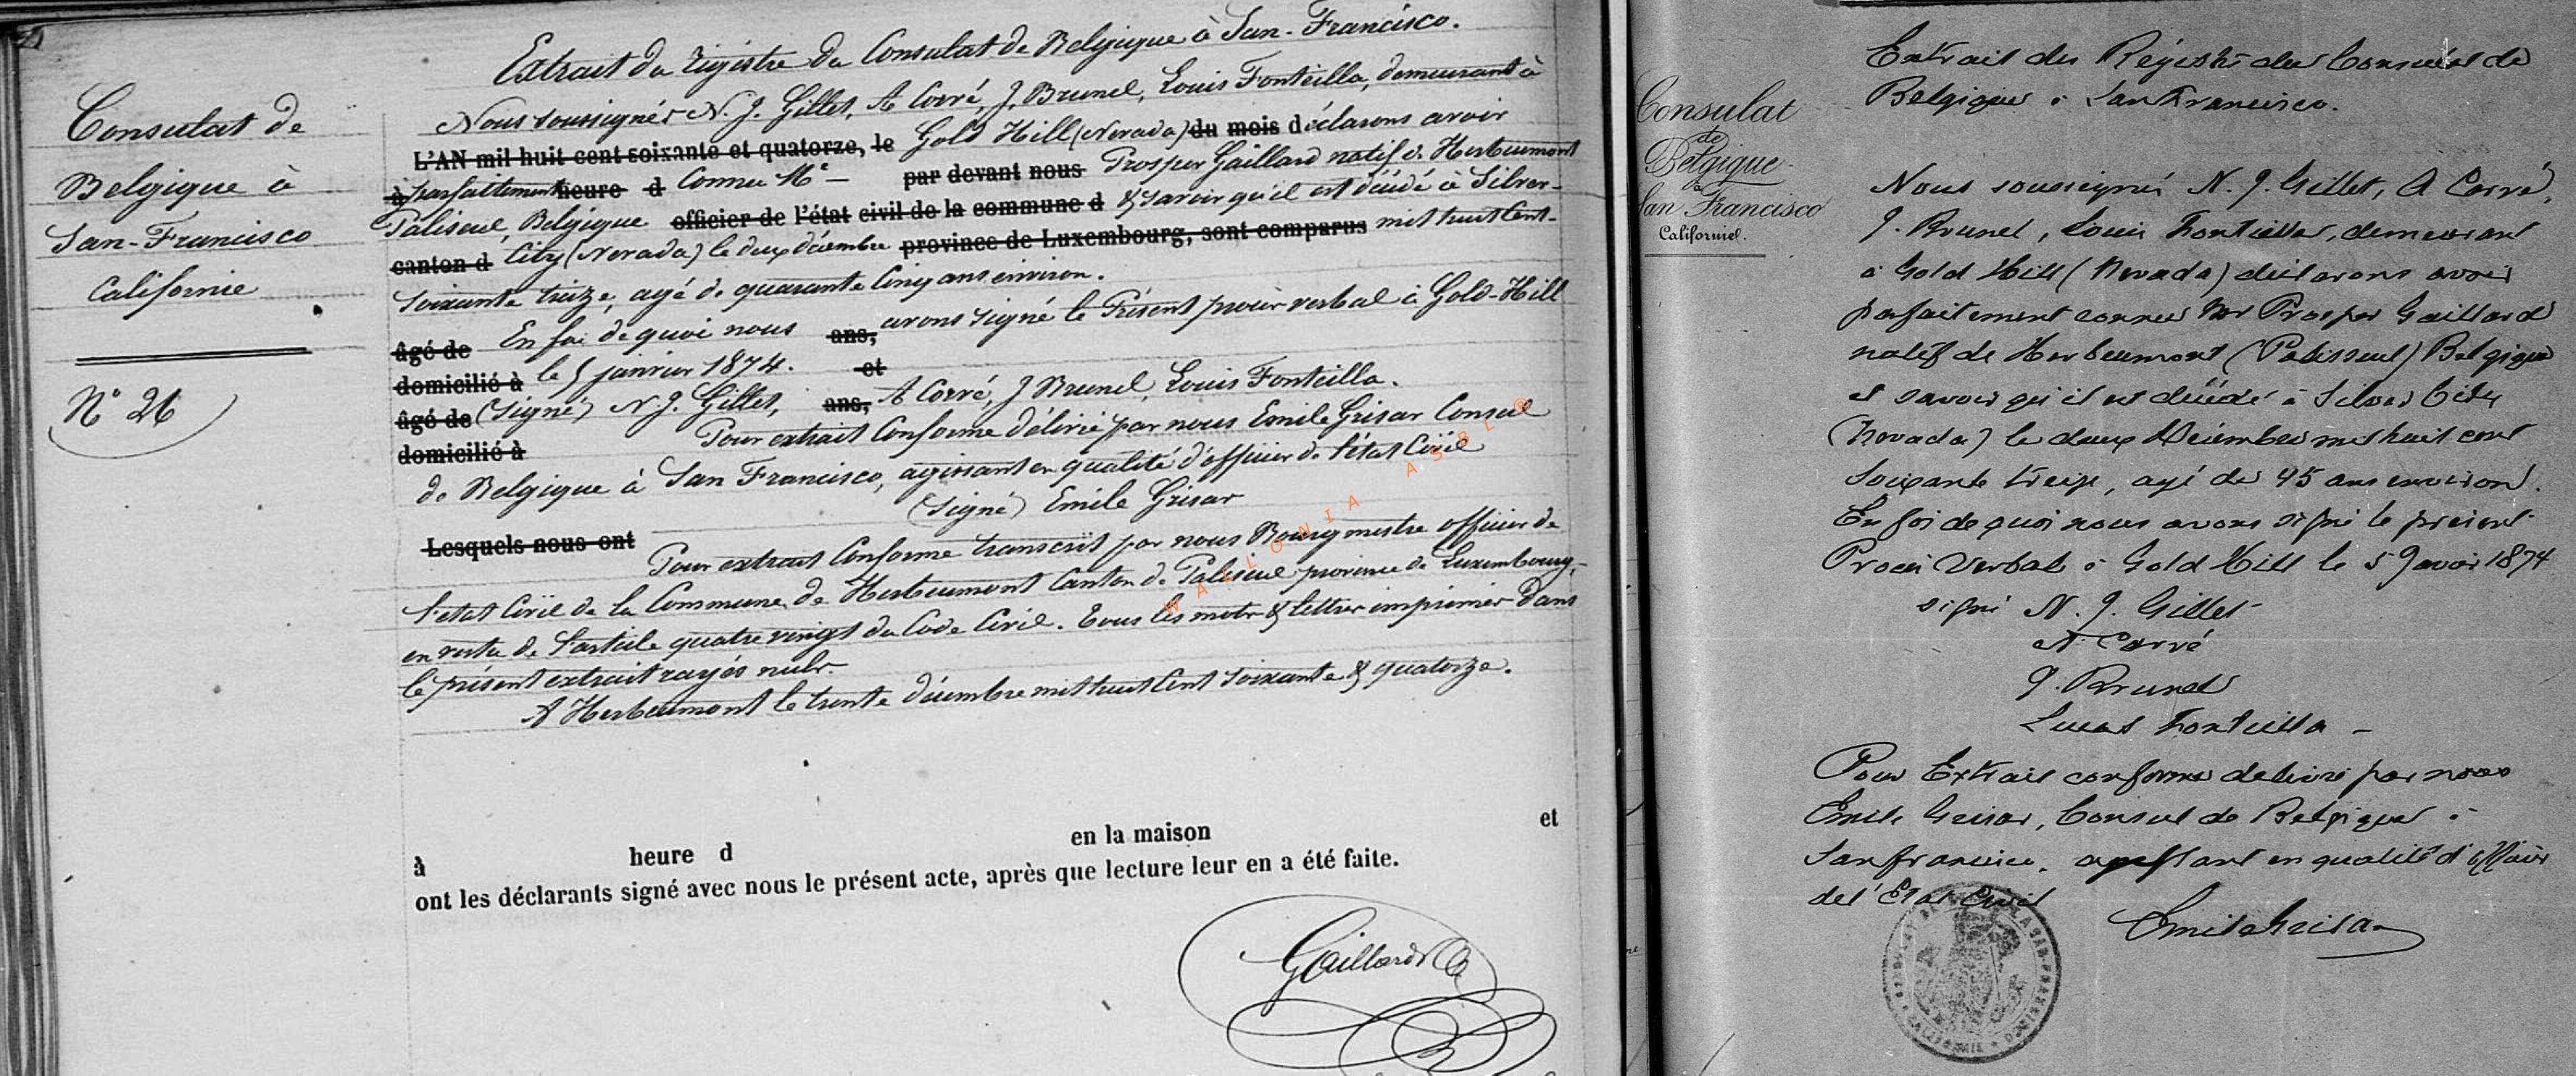 Consulat de
Belgique à
San-Francisco
Californie
N° 26
Extrait du régistre du Consulat de Belgique à San-Francisco.
Nous soussignés N. J. Gillet, A Corré, J. Brunel, Louis Fonteilla, demeurant à
L'AN mil huit cent soixante et quatorze, le Gold Hill (Nevada) du mois déclarons avoir
à parfaitement heure d connu Mr par devant nous Prosper Gaillard natif de Herbeumont
Paliseul, Belgique officier de l'état civil de la commune d & savoir qu'il est décédé à Silver-
canton d City (Nevada) le deux décembre province de Luxembourg, sont comparus mil huit cent-
soixante treize, agé de quarante cinq ans environ.
âgé de En foi de quoi nous ans, avons signé le Présent procès verbal à Gold-Hill
domicilié à le 5 janvier 1874. et
âgé de (signé) N J. Gillet, ans, A Corré, J Brunel, Louis Fonteilla.
domicilié à Pour extrait Conforme délivré par nous Emile Grisar Consul
de Belgique à San Francisco, agissant en qualité d'officier de l'état Civil
(signé) Emile Grisar
Lesquels nous ont Pour extrait Conforme transcrit par nous Bourgmestre officier de
l'état Civil de la Commune de Herbeumont Canton de Paliseul province de Luxembourg,
en vertu de l'article quatre vingt du Code Civil. Tous les mots & lettres imprimés dans
le présent extrait rayés nuls.
A Herbeumont le trente décembre mil huit cent soixante & quatorze.
à heure d en la maison et
ont les déclarants signé avec nous le présent acte, après que lecture leur en a été faite.
Gaillard
WALLONIA ASBL ©
Consulat
de
Belgique
à
San Francisco
Californie.
Extrait du Régistre du Consulat de
Belgique à San Francisco.
Nous soussignés N. J. Gillet, A Corré,
J. Brunel, Louis Fonteilla, demeurant
à Gold Hill (Nevada) déclarons avoir
parfaitement connu Mr Prosper Gaillard
natif de Herbeumont (Palisseul) Belgique
et savoir qu'il est décédé à Silver City
(Nevada) le deux Décembre mil huit cent
soixante treize, agé de 45 ans environ.
En foi de quoi nous avons signé le présent
Procès Verbal à Gold Hill le 5 Janvier 1874
signé N. J. Gillet
A. Corré
J. Brunel
Louis Fonteilla -
Pour Extrait conforme délivré par nous
Emile Grisar, Consul de Belgique à
San francisco, agissant en qualité d'officier
de l'Etat Civil
Emile Grisar